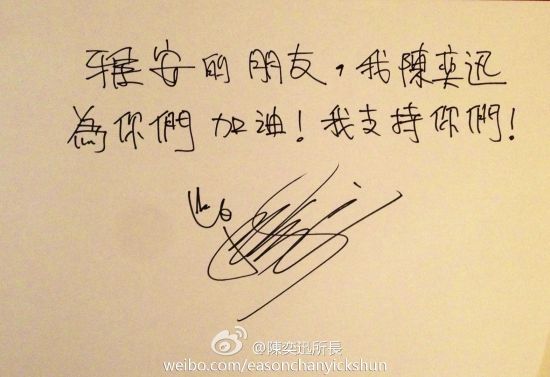 雅安的朋友，我陳奕迅
為你們加油！我支持你們！
@陳奕迅所長
weibo.com/easonchanyickshun